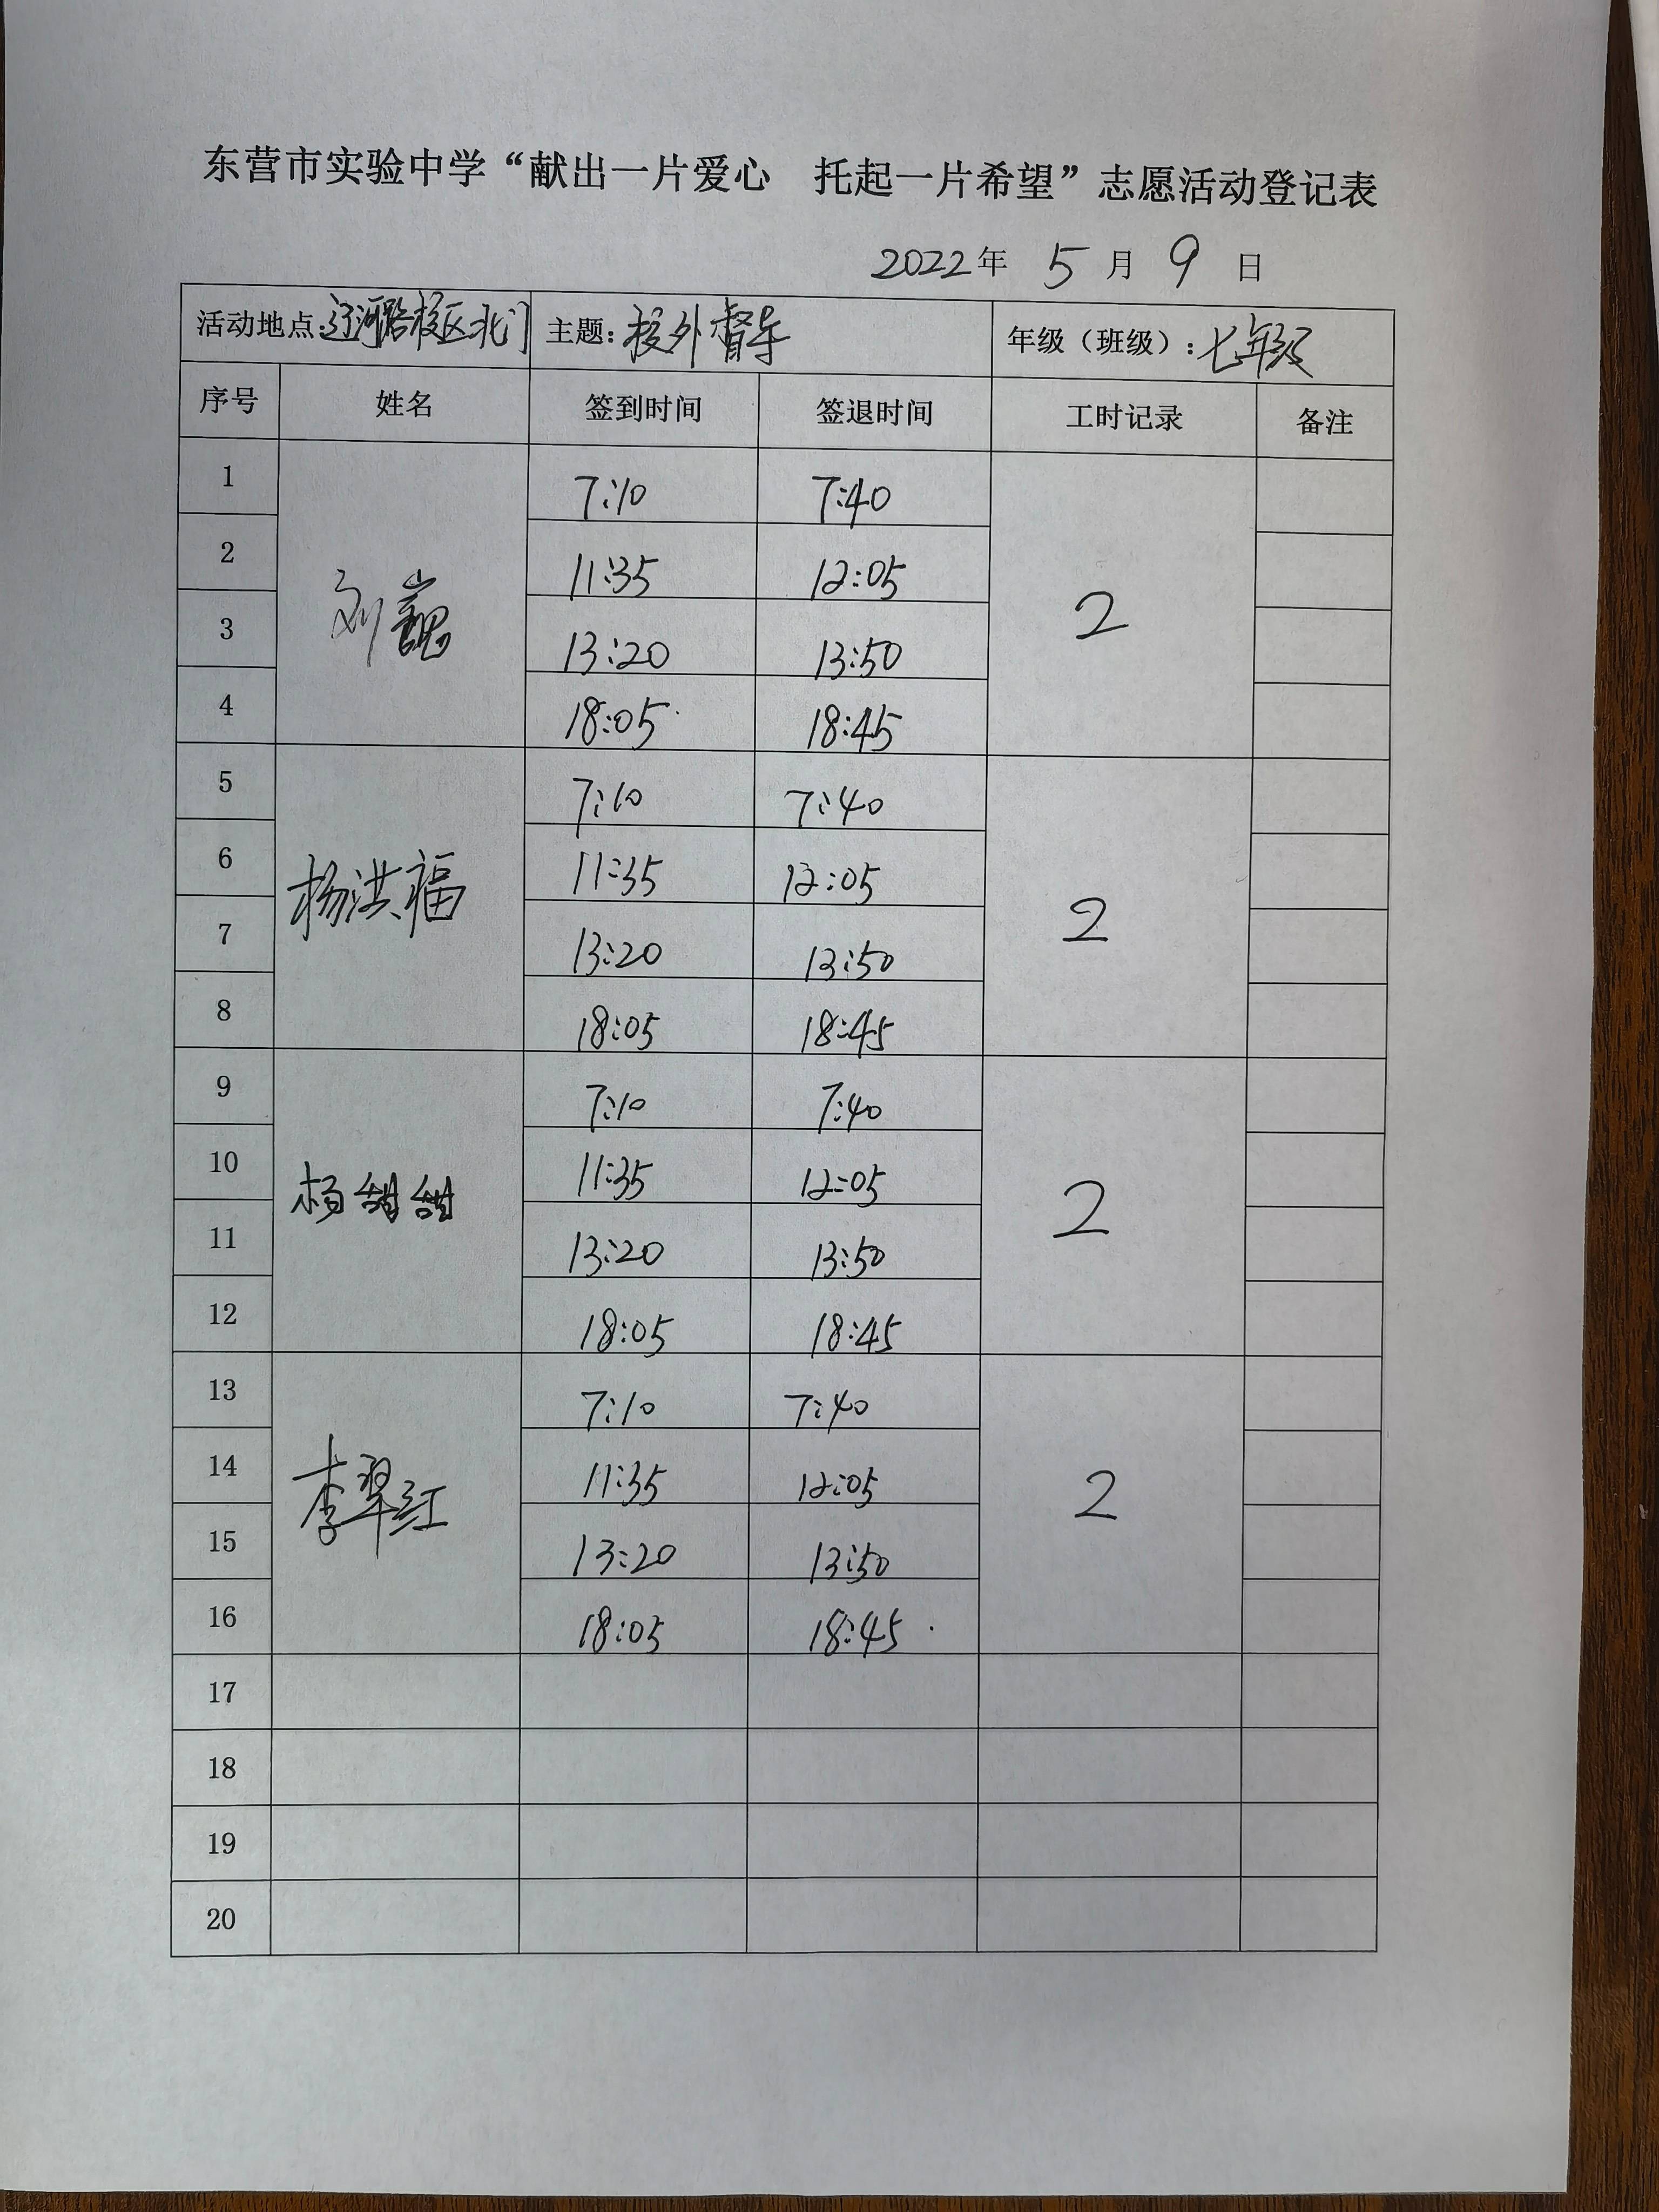 东营市实验中学“献出一片爱心 托起一片希望”志愿活动登记表
2022年 5 月 9 日
活动地点:辽河路校区北门 主题:校外督导 年级（班级）:七年级
序号 姓名 签到时间 签退时间 工时记录 备注
1 7:10 7:40
2 11:35 12:05
刘巍 2
3 13:20 13:50
4 18:05 18:45
5 7:10 7:40
6 11:35 12:05
杨洪福 2
7 13:20 13:50
8 18:05 18:45
9 7:10 7:40
10 11:35 12:05
杨甜甜 2
11 13:20 13:50
12 18:05 18:45
13 7:10 7:40
14 11:35 12:05
李翠红 2
15 13:20 13:50
16 18:05 18:45
17
18
19
20